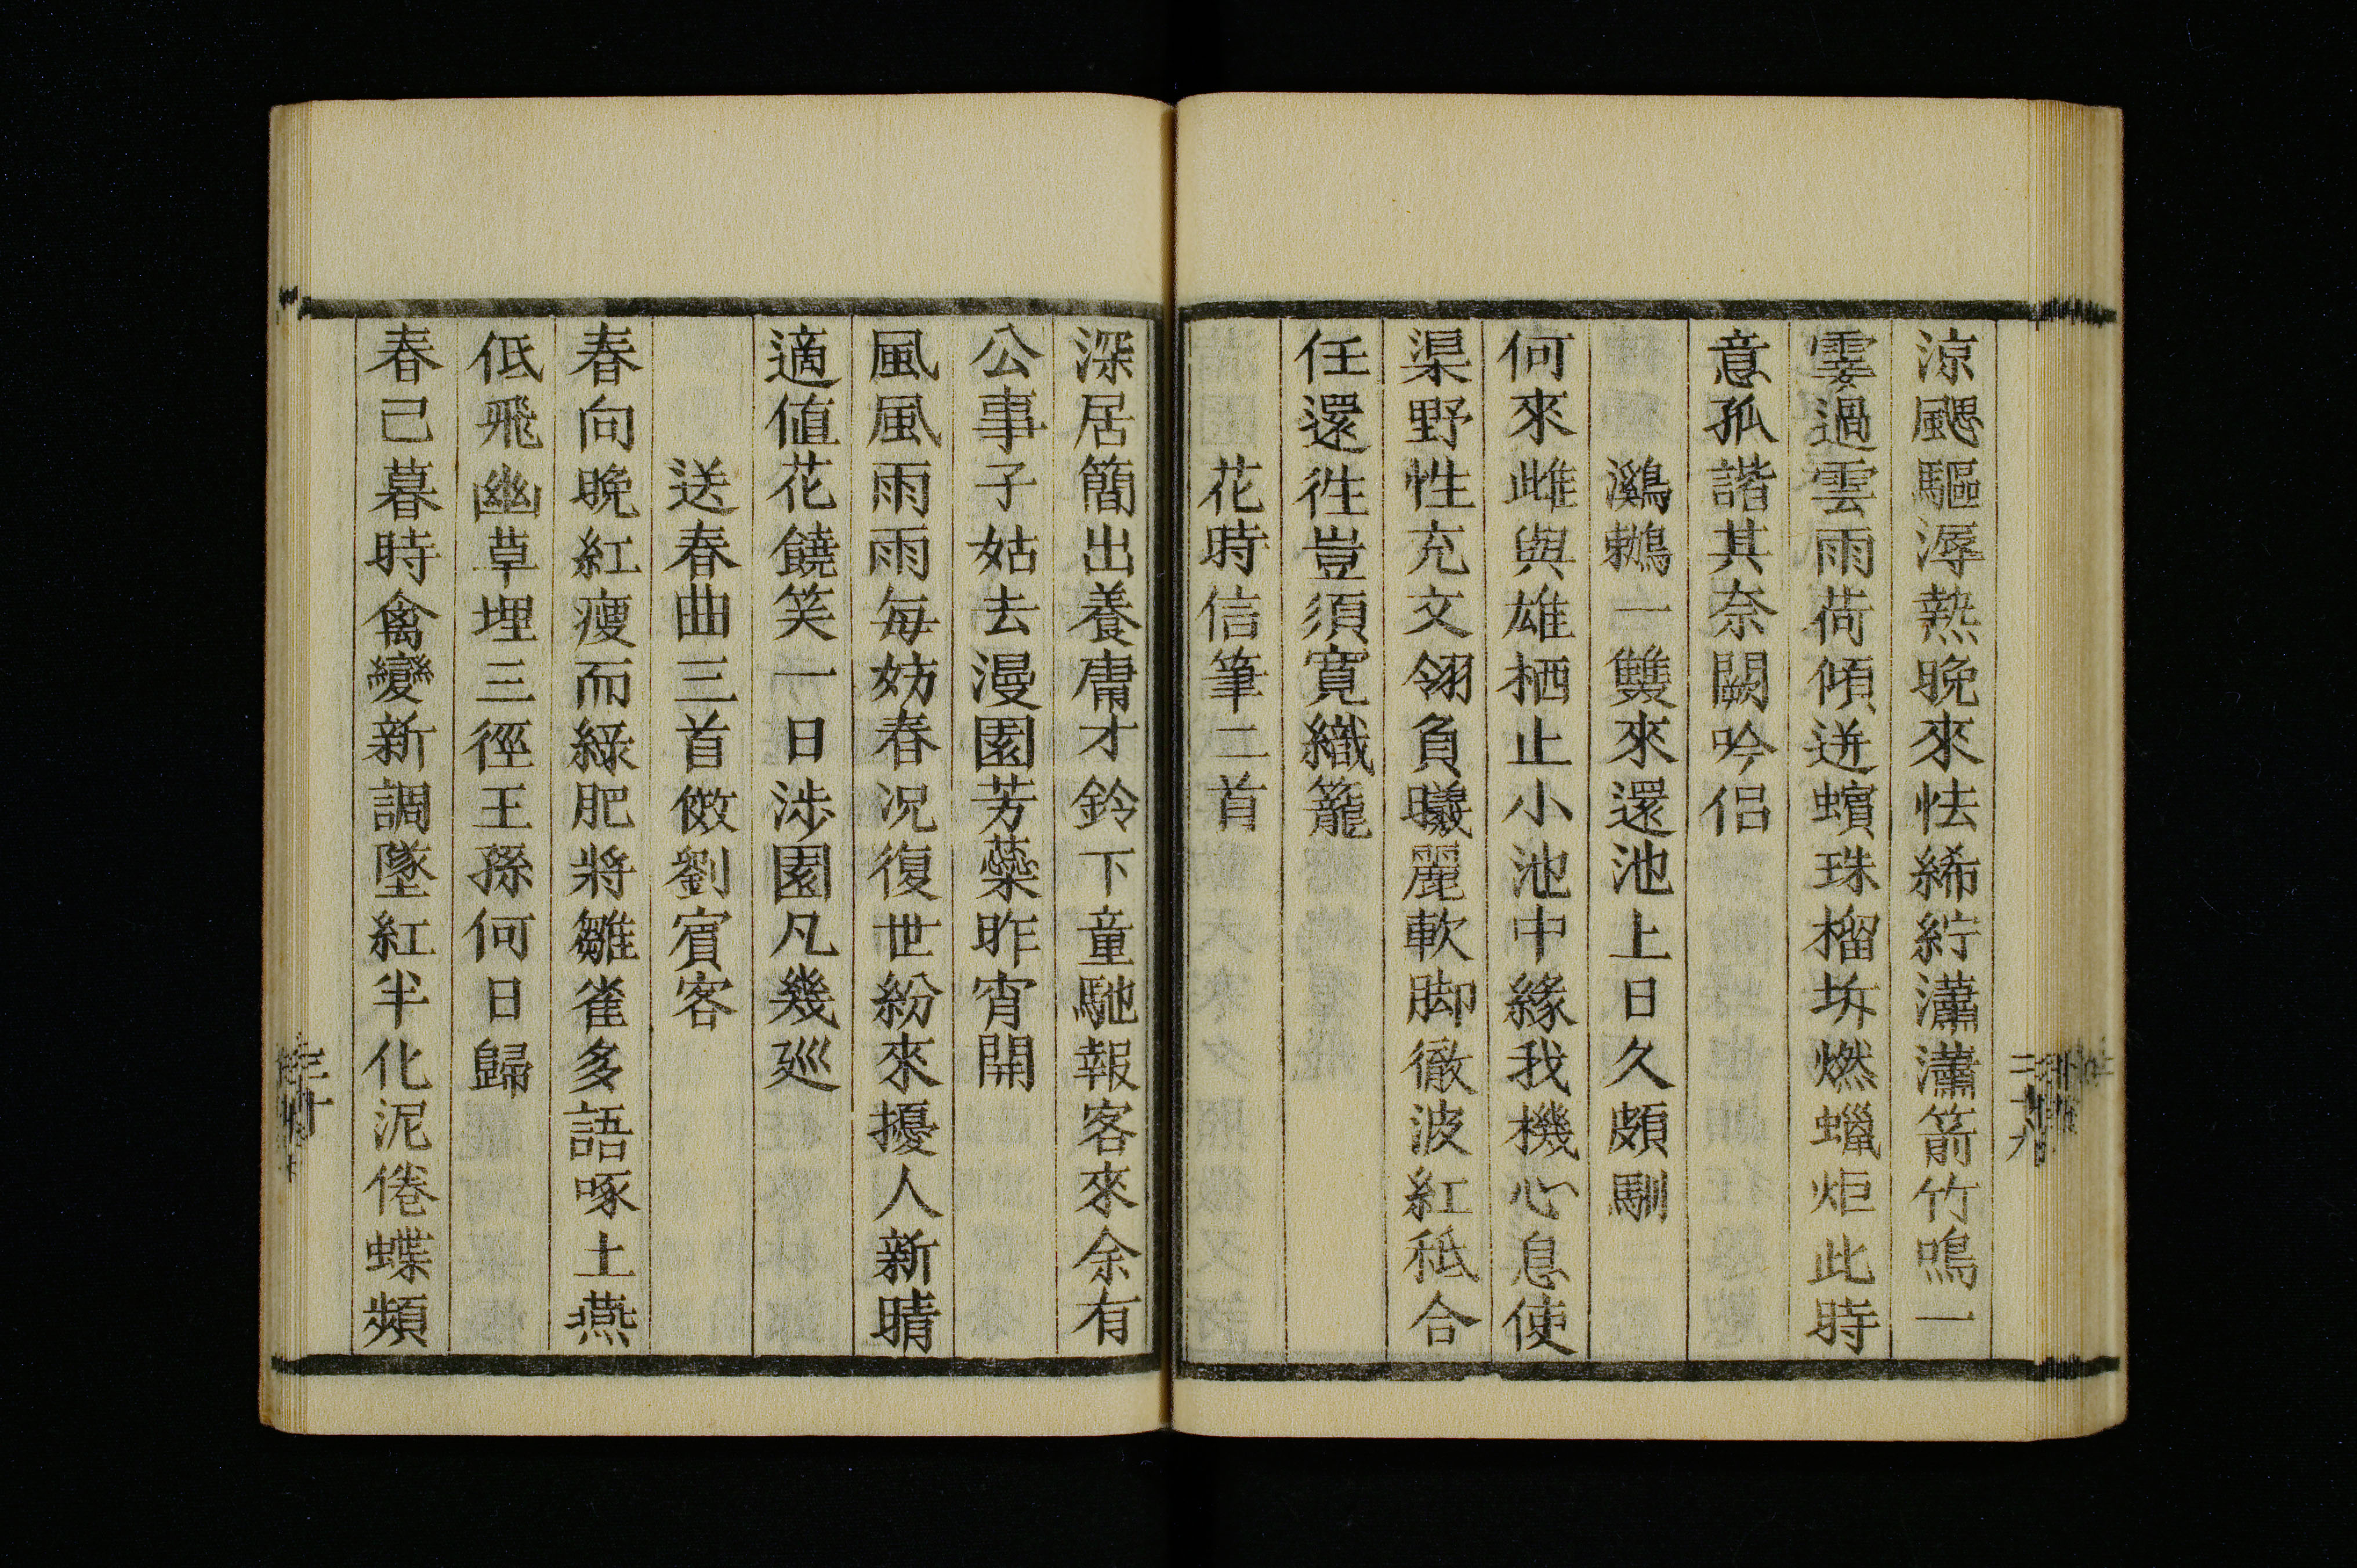 涼颸驅溽熱晚來怯絺紵瀟瀟箭竹鳴一
霎過雲雨荷傾迸蠙珠榴坼燃蠟炬此時
意孤諧其奈闕吟侶
鸂鶒一雙來還池上日久頗馴
何來雌與雄栖止小池中緣我機心息使
渠野性充文翎負曦麗軟脚徹波紅秪合
任還徃豈須寬織籠
花時信筆二首
深居簡出養庸才鈴下童馳報客來余有
公事子姑去漫園芳藥昨宵開
風風雨雨每妨春况復世紛來擾人新晴
適値花饒笑一日涉園凡幾廵
送春曲三首倣劉賓客
春向晚紅瘦而綠肥將雛雀多語啄土燕
低飛幽草埋三徑王孫何日歸
春己暮時禽變新調墜紅半化泥倦蝶頻